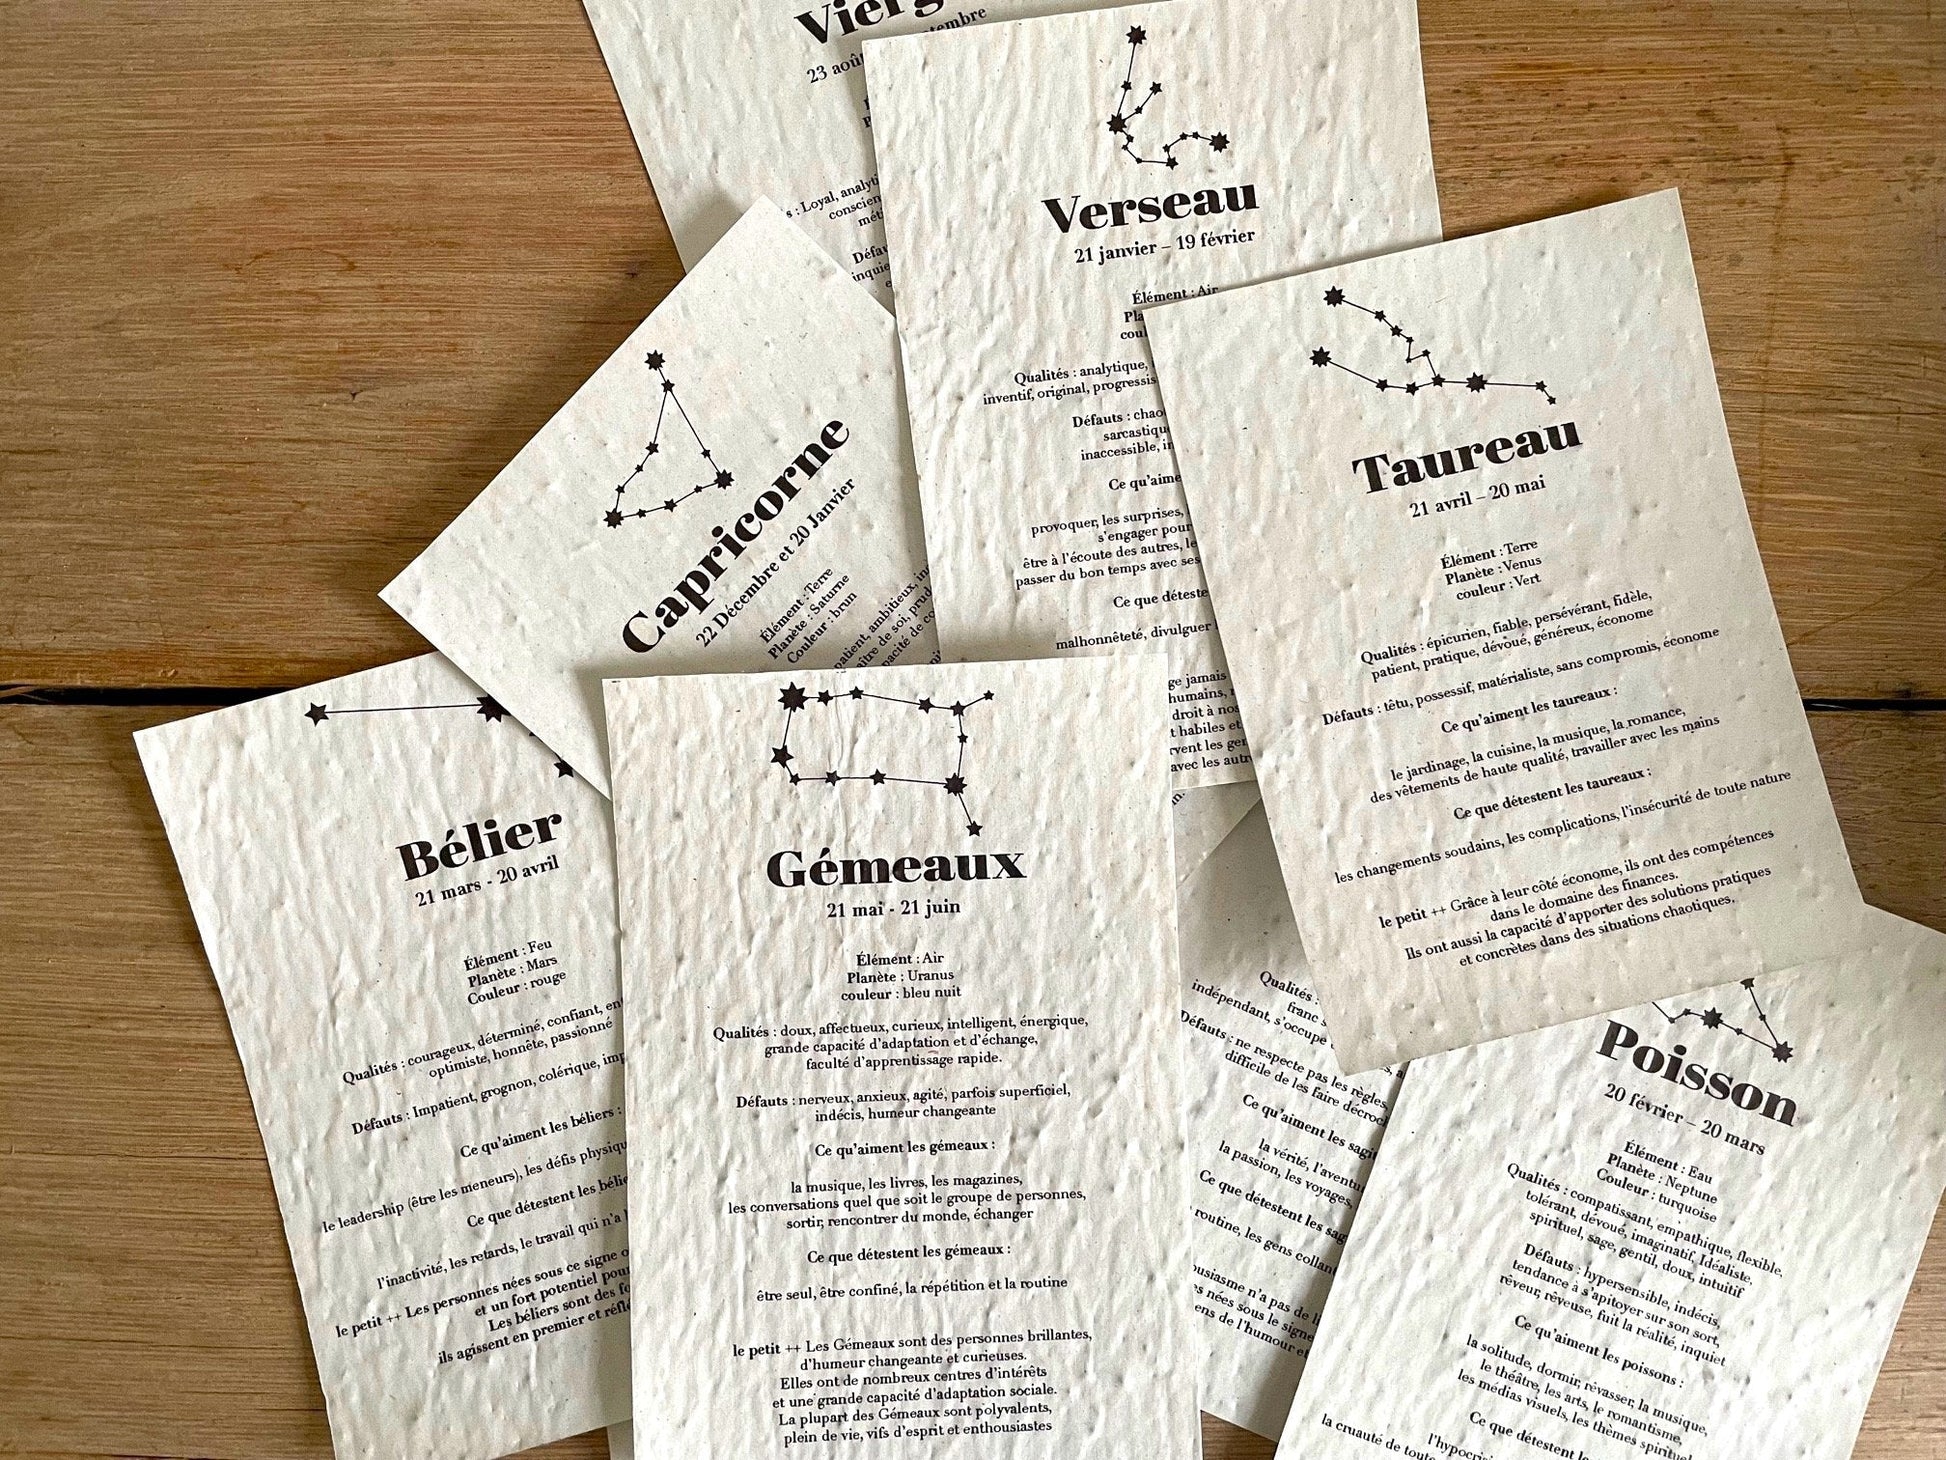 Vierg
23 août
tembre
s : Loyal, analyti
conscien
mét
Défau
inquie
Verseau
21 janvier – 19 février
Élément : Air
Pla
coul
Qualités : analytique,
inventif, original, progressis
Défauts : chao
sarcastiqu
inaccessible, i
Ce qu'aime
provoquer, les surprises,
s'engager pour
être à l'écoute des autres, le
passer du bon temps avec ses
Ce que déteste
malhonnêteté, divulguer
ge jamais
humains,
droit à nos
t habiles et
rvent les gen
avec les autr
Taureau
21 avril – 20 mai
Élément : Terre
Planète : Venus
couleur : Vert
Qualités : épicurien, fiable, persévérant, fidèle,
patient, pratique, dévoué, généreux, économe
Défauts : têtu, possessif, matérialiste, sans compromis, économe
Ce qu'aiment les taureaux :
le jardinage, la cuisine, la musique, la romance,
des vêtements de haute qualité, travailler avec les mains
Ce que détestent les taureaux :
les changements soudains, les complications, l'insécurité de toute nature
le petit ++ Grâce à leur côté économe, ils ont des compétences
dans le domaine des finances.
Ils ont aussi la capacité d'apporter des solutions pratiques
et concrètes dans des situations chaotiques.
Capricorne
22 Décembre et 20 Janvier
Élément : Terre
Planète : Saturne
Couleur : brun
patient, ambitieux, in
aître de soi, prud
apacité de co
Bélier
21 mars - 20 avril
Élément : Feu
Planète : Mars
Couleur : rouge
Qualités : courageux, déterminé, confiant, en
optimiste, honnête, passionné
Défauts : Impatient, grognon, colérique, imp
Ce qu'aiment les béliers :
le leadership (être les meneurs), les défis physiqu
Ce que détestent les bélie
l'inactivité, les retards, le travail qui n'a
le petit ++ Les personnes nées sous ce signe o
et un fort potentiel pour
Les béliers sont des fo
ils agissent en premier et réflé
Gémeaux
21 mai - 21 juin
Élément : Air
Planète : Uranus
couleur : bleu nuit
Qualités : doux, affectueux, curieux, intelligent, énergique,
grande capacité d'adaptation et d'échange,
faculté d'apprentissage rapide.
Défauts : nerveux, anxieux, agité, parfois superficiel,
indécis, humeur changeante
Ce qu'aiment les gémeaux :
la musique, les livres, les magazines,
les conversations quel que soit le groupe de personnes,
sortir, rencontrer du monde, échanger
Ce que détestent les gémeaux :
être seul, être confiné, la répétition et la routine
le petit ++ Les Gémeaux sont des personnes brillantes,
d'humeur changeante et curieuses.
Elles ont de nombreux centres d'intérêts
et une grande capacité d'adaptation sociale.
La plupart des Gémeaux sont polyvalents,
plein de vie, vifs d'esprit et enthousiastes
Qualités :
franc s
indépendant, s'occupe
Défauts : ne respecte pas les règles,
difficile de les faire décroc
Ce qu'aiment les sagit
la vérité, l'aventu
la passion, les voyages,
Ce que détestent les sag
routine, les gens collant
ousiasme n'a pas de li
s nées sous le signe
ens de l'humour et
Poisson
20 février – 20 mars
Élément : Eau
Planète : Neptune
Couleur : turquoise
Qualités : compatissant, empathique, flexible,
tolérant, dévoué, imaginatif, Idéaliste,
spirituel, sage, gentil, doux, intuitif
Défauts : hypersensible, indécis,
tendance à s'apitoyer sur son sort,
rêveur, rêveuse, fuit la réalité, inquiet
Ce qu'aiment les poissons :
la solitude, dormir, rêvasser, la musique,
le théâtre, les arts, le romantisme,
les médias visuels, les thèmes spirituel
Ce que détestent le
l'hypocri
la cruauté de tout